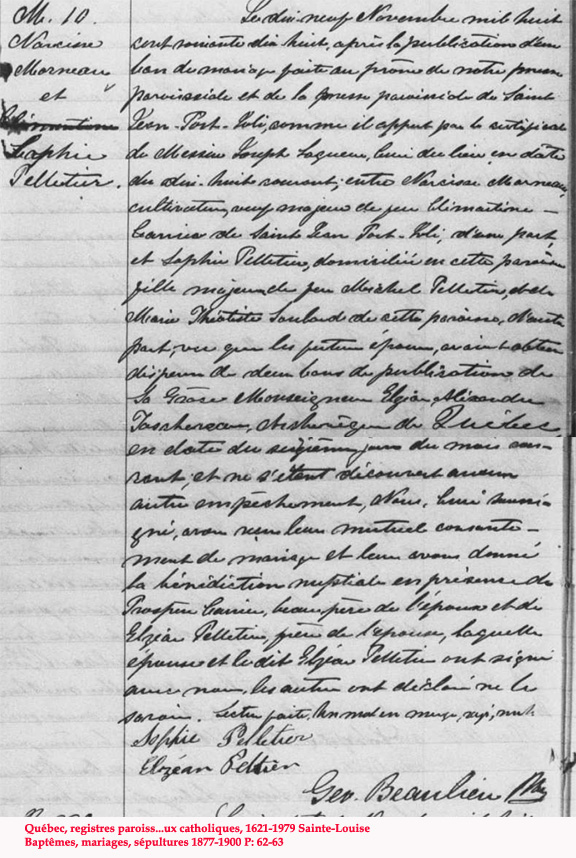 M. 10
Narcisse
Morneau
et
Clémentine
Sophie
Pelletier.
Le dix neuf Novembre mil huit
cent soixante dix huit, après la publication d'un
ban de mariage faite au prône de notre messe
paroissiale et de la messe paroissiale de Saint
Jean-Port-Joli, comme il appert par le certificat
de Messire Joseph Lagueux, Curé du lieu en date
du dix-huit courant; entre Narcisse Morneau,
cultivateur, veuf majeur de feu Clémentine
Caron de Saint Jean Port-Joli, d'une part,
et Sophie Pelletier, domiciliée en cette paroisse
fille majeure de feu Michel Pelletier, et de
Marie Théotiste Soulard de cette paroisse, d'autre
part; vu que les futurs époux, avaient obtenu
dispense de deux bans de publications de
Sa Grâce Monseigneur Elzéar Alexandre
Taschereau, Archevêque de Québec
en date du seizième jour du mois cou-
rant; et ne s'étant découvert aucun
autre empêchement, Nous, Curé soussi-
gné, avons reçu leur mutuel consente-
ment de mariage et leur avons donné
la bénédiction nuptiale en présence de
Prosper Caron, beau-père de l'époux et de
Elzéar Pelletier, frère de l'épouse, laquelle
épouse et le dit Elzéar Pelletier ont signé
avec nous, les autres ont déclaré ne le
savoir. Lecture faite. Un mot en marge, rayé, nul.
Sophie Pelletier
Elzéar Peltier
Geo. Beaulieu Ptre
Québec, registres paroiss...ux catholiques, 1621-1979 Sainte-Louise
Baptêmes, mariages, sépultures 1877-1900 P: 62-63